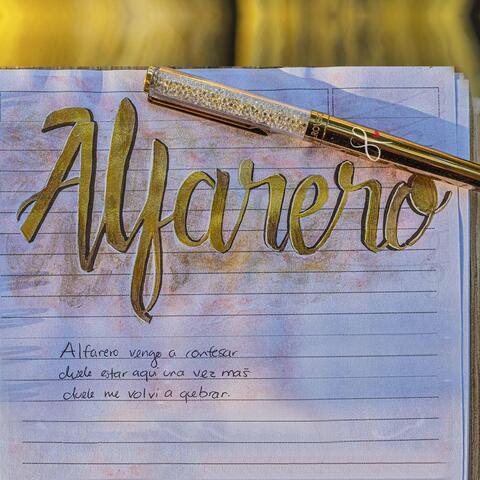 Alfarero
Alfarero vengo a confesar
duele estar aqui una vez más
duele me volvi a quebrar.